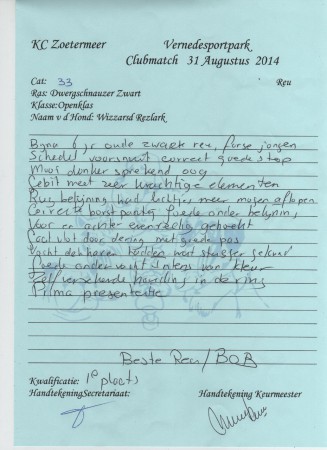 KC Zoetermeer Vernedesportpark
Clubmatch 31 Augustus 2014
Cat: 33 Reu
Ras: Dwergschnauzer Zwart
Klasse:Openklas
Naam v d Hond: Wizzarsd Rezlark
Bijna 6 jr oude zwarte reu, forse jongen
Schedel voorsnuit correct goede stop
Mooi donker sprekend oog
Gebit met zeer krachtige elementen
Rug belijning had lichtjes meer mogen aflopen
Correcte borstpartij goede onder belijning
Voor en achter evenredig gehoekt
Gaat vlot door de ring met goede pas
Vacht
Goede onder vacht intens van kleur
houding in de ring
Prima presentatie
Beste Reu/BOB
Kwalificatie: 1e plaats
HandtekeningSecretariaat: Handtekening Keurmeester